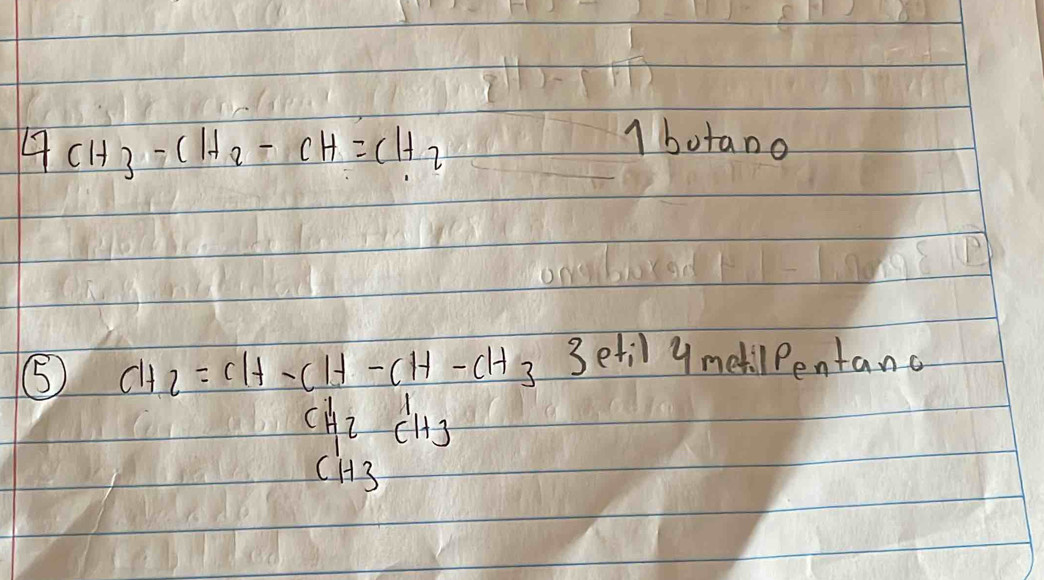 4 CH3 - CH2 - CH = CH2 1 butano
5 CH2 = CH - CH - CH - CH3 3 etil 4 metil Pentano
CH2 CH3
CH3